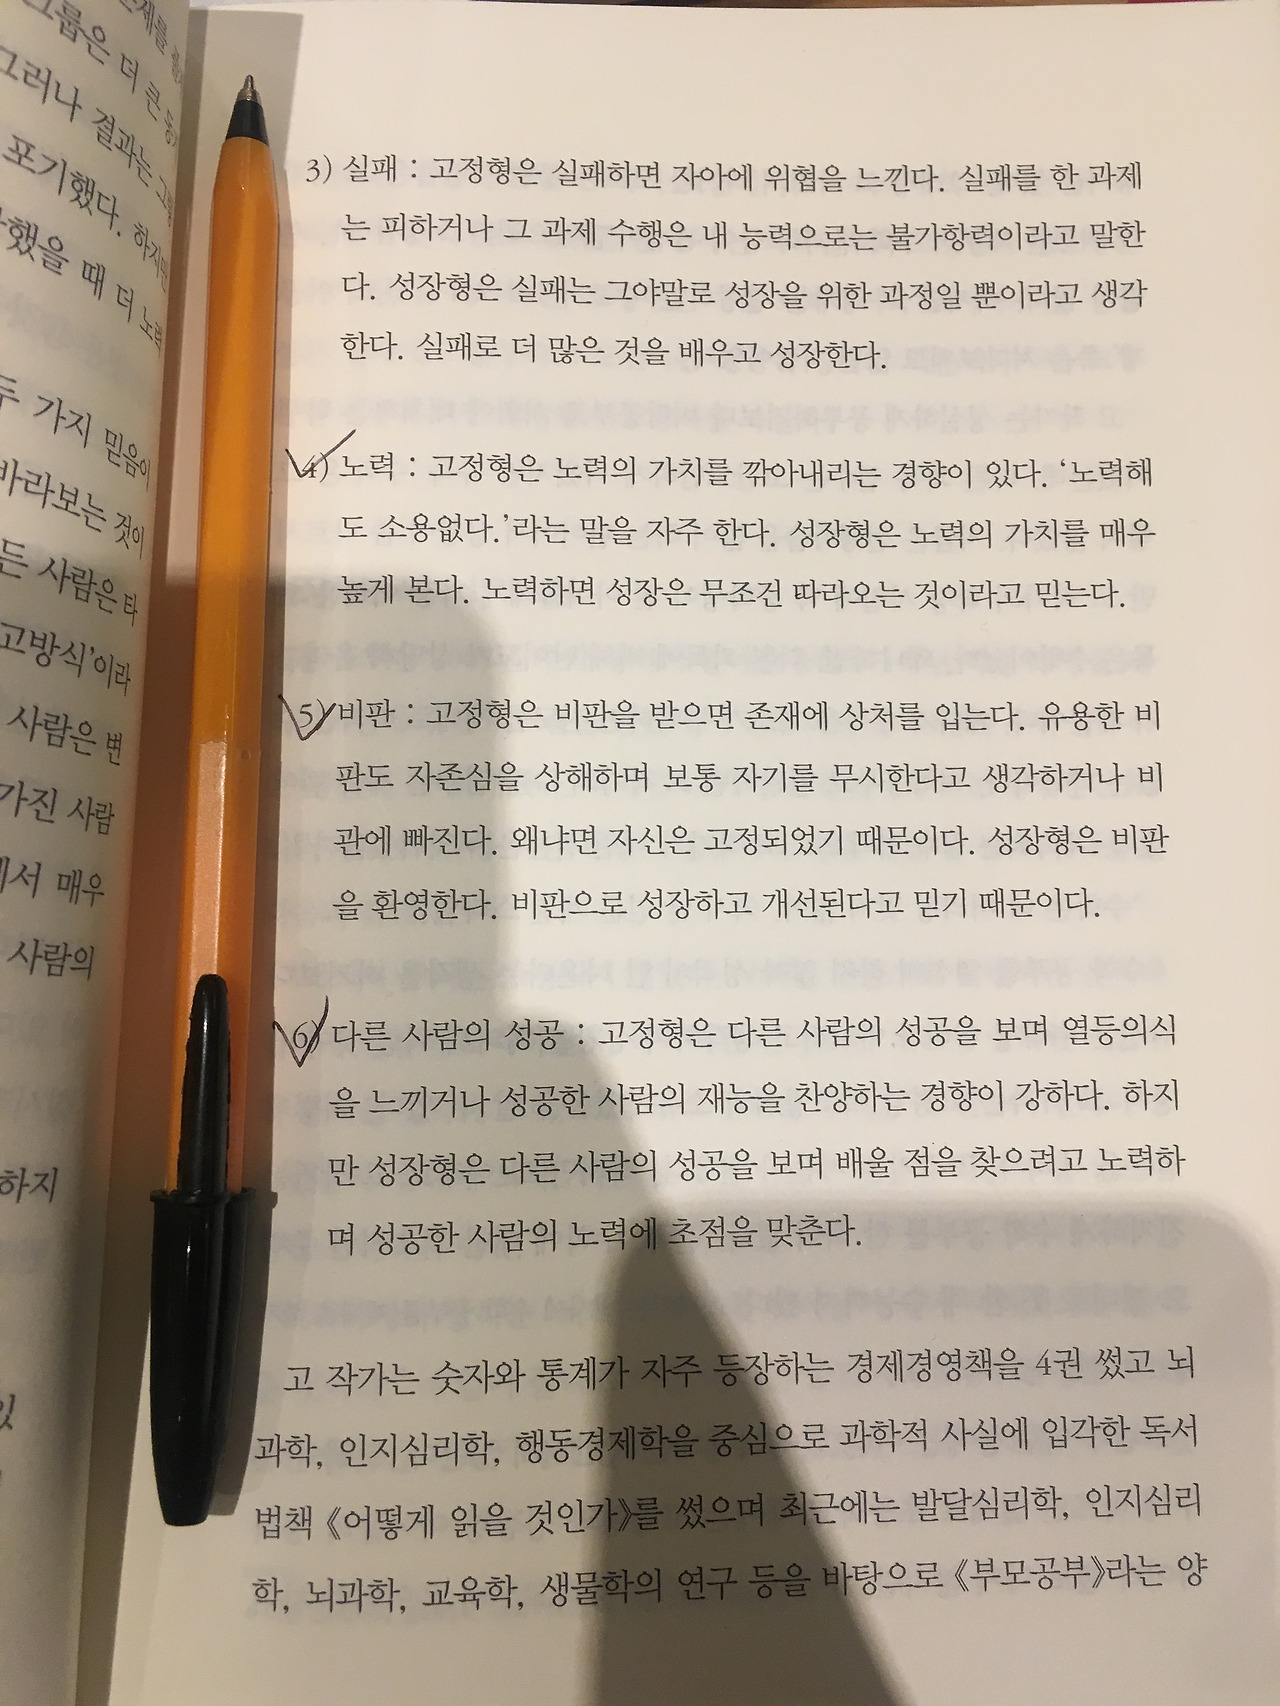 그룹은 더 큰
그러나 결과는
포기했다. 하지만
했을 때 더 노력
두 가지 믿음이
바라보는 것이
든 사람은 타
고방식’이라
사람은 변
가진 사람
에서 매우
사람의
하지
3) 실패 : 고정형은 실패하면 자아에 위협을 느낀다. 실패를 한 과제
는 피하거나 그 과제 수행은 내 능력으로는 불가항력이라고 말한
다. 성장형은 실패는 그야말로 성장을 위한 과정일 뿐이라고 생각
한다. 실패로 더 많은 것을 배우고 성장한다.
4) 노력 : 고정형은 노력의 가치를 깎아내리는 경향이 있다. ‘노력해
도 소용없다.’라는 말을 자주 한다. 성장형은 노력의 가치를 매우
높게 본다. 노력하면 성장은 무조건 따라오는 것이라고 믿는다.
5) 비판 : 고정형은 비판을 받으면 존재에 상처를 입는다. 유용한 비
판도 자존심을 상해하며 보통 자기를 무시한다고 생각하거나 비
관에 빠진다. 왜냐면 자신은 고정되었기 때문이다. 성장형은 비판
을 환영한다. 비판으로 성장하고 개선된다고 믿기 때문이다.
6) 다른 사람의 성공 : 고정형은 다른 사람의 성공을 보며 열등의식
을 느끼거나 성공한 사람의 재능을 찬양하는 경향이 강하다. 하지
만 성장형은 다른 사람의 성공을 보며 배울 점을 찾으려고 노력하
며 성공한 사람의 노력에 초점을 맞춘다.
고 작가는 숫자와 통계가 자주 등장하는 경제경영책을 4권 썼고 뇌
과학, 인지심리학, 행동경제학을 중심으로 과학적 사실에 입각한 독서
법책 《어떻게 읽을 것인가》를 썼으며 최근에는 발달심리학, 인지심리
학, 뇌과학, 교육학, 생물학의 연구 등을 바탕으로 《부모공부》라는 양